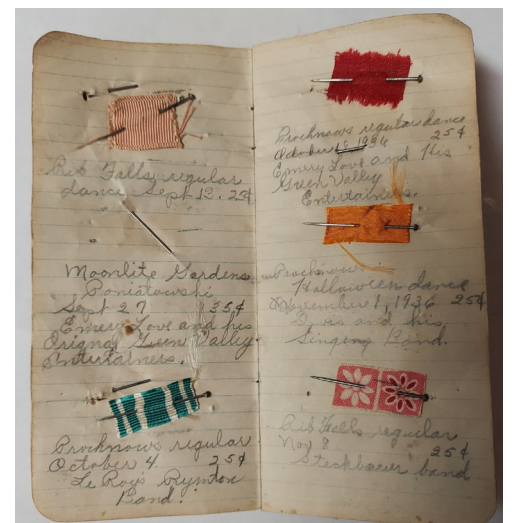 Rib Falls, regular
dance Sept 13. 25¢
Moonlite Gardens
Poniatowski
Sept 27 35¢
Emery Love and his
Orignal Green Valley
Entertainers.
Procknows regular
October 4 25¢
Le Roys Rynton
Band.
Procknows regular dance
October 1936 25¢
Emery Love and His
Green Valley
Entertainers.
Procknows
Halloween dance
November 1, 1936 25¢
and his
Singing Band.
Rib Falls regular
Nov 8 25¢
Steckbauer band